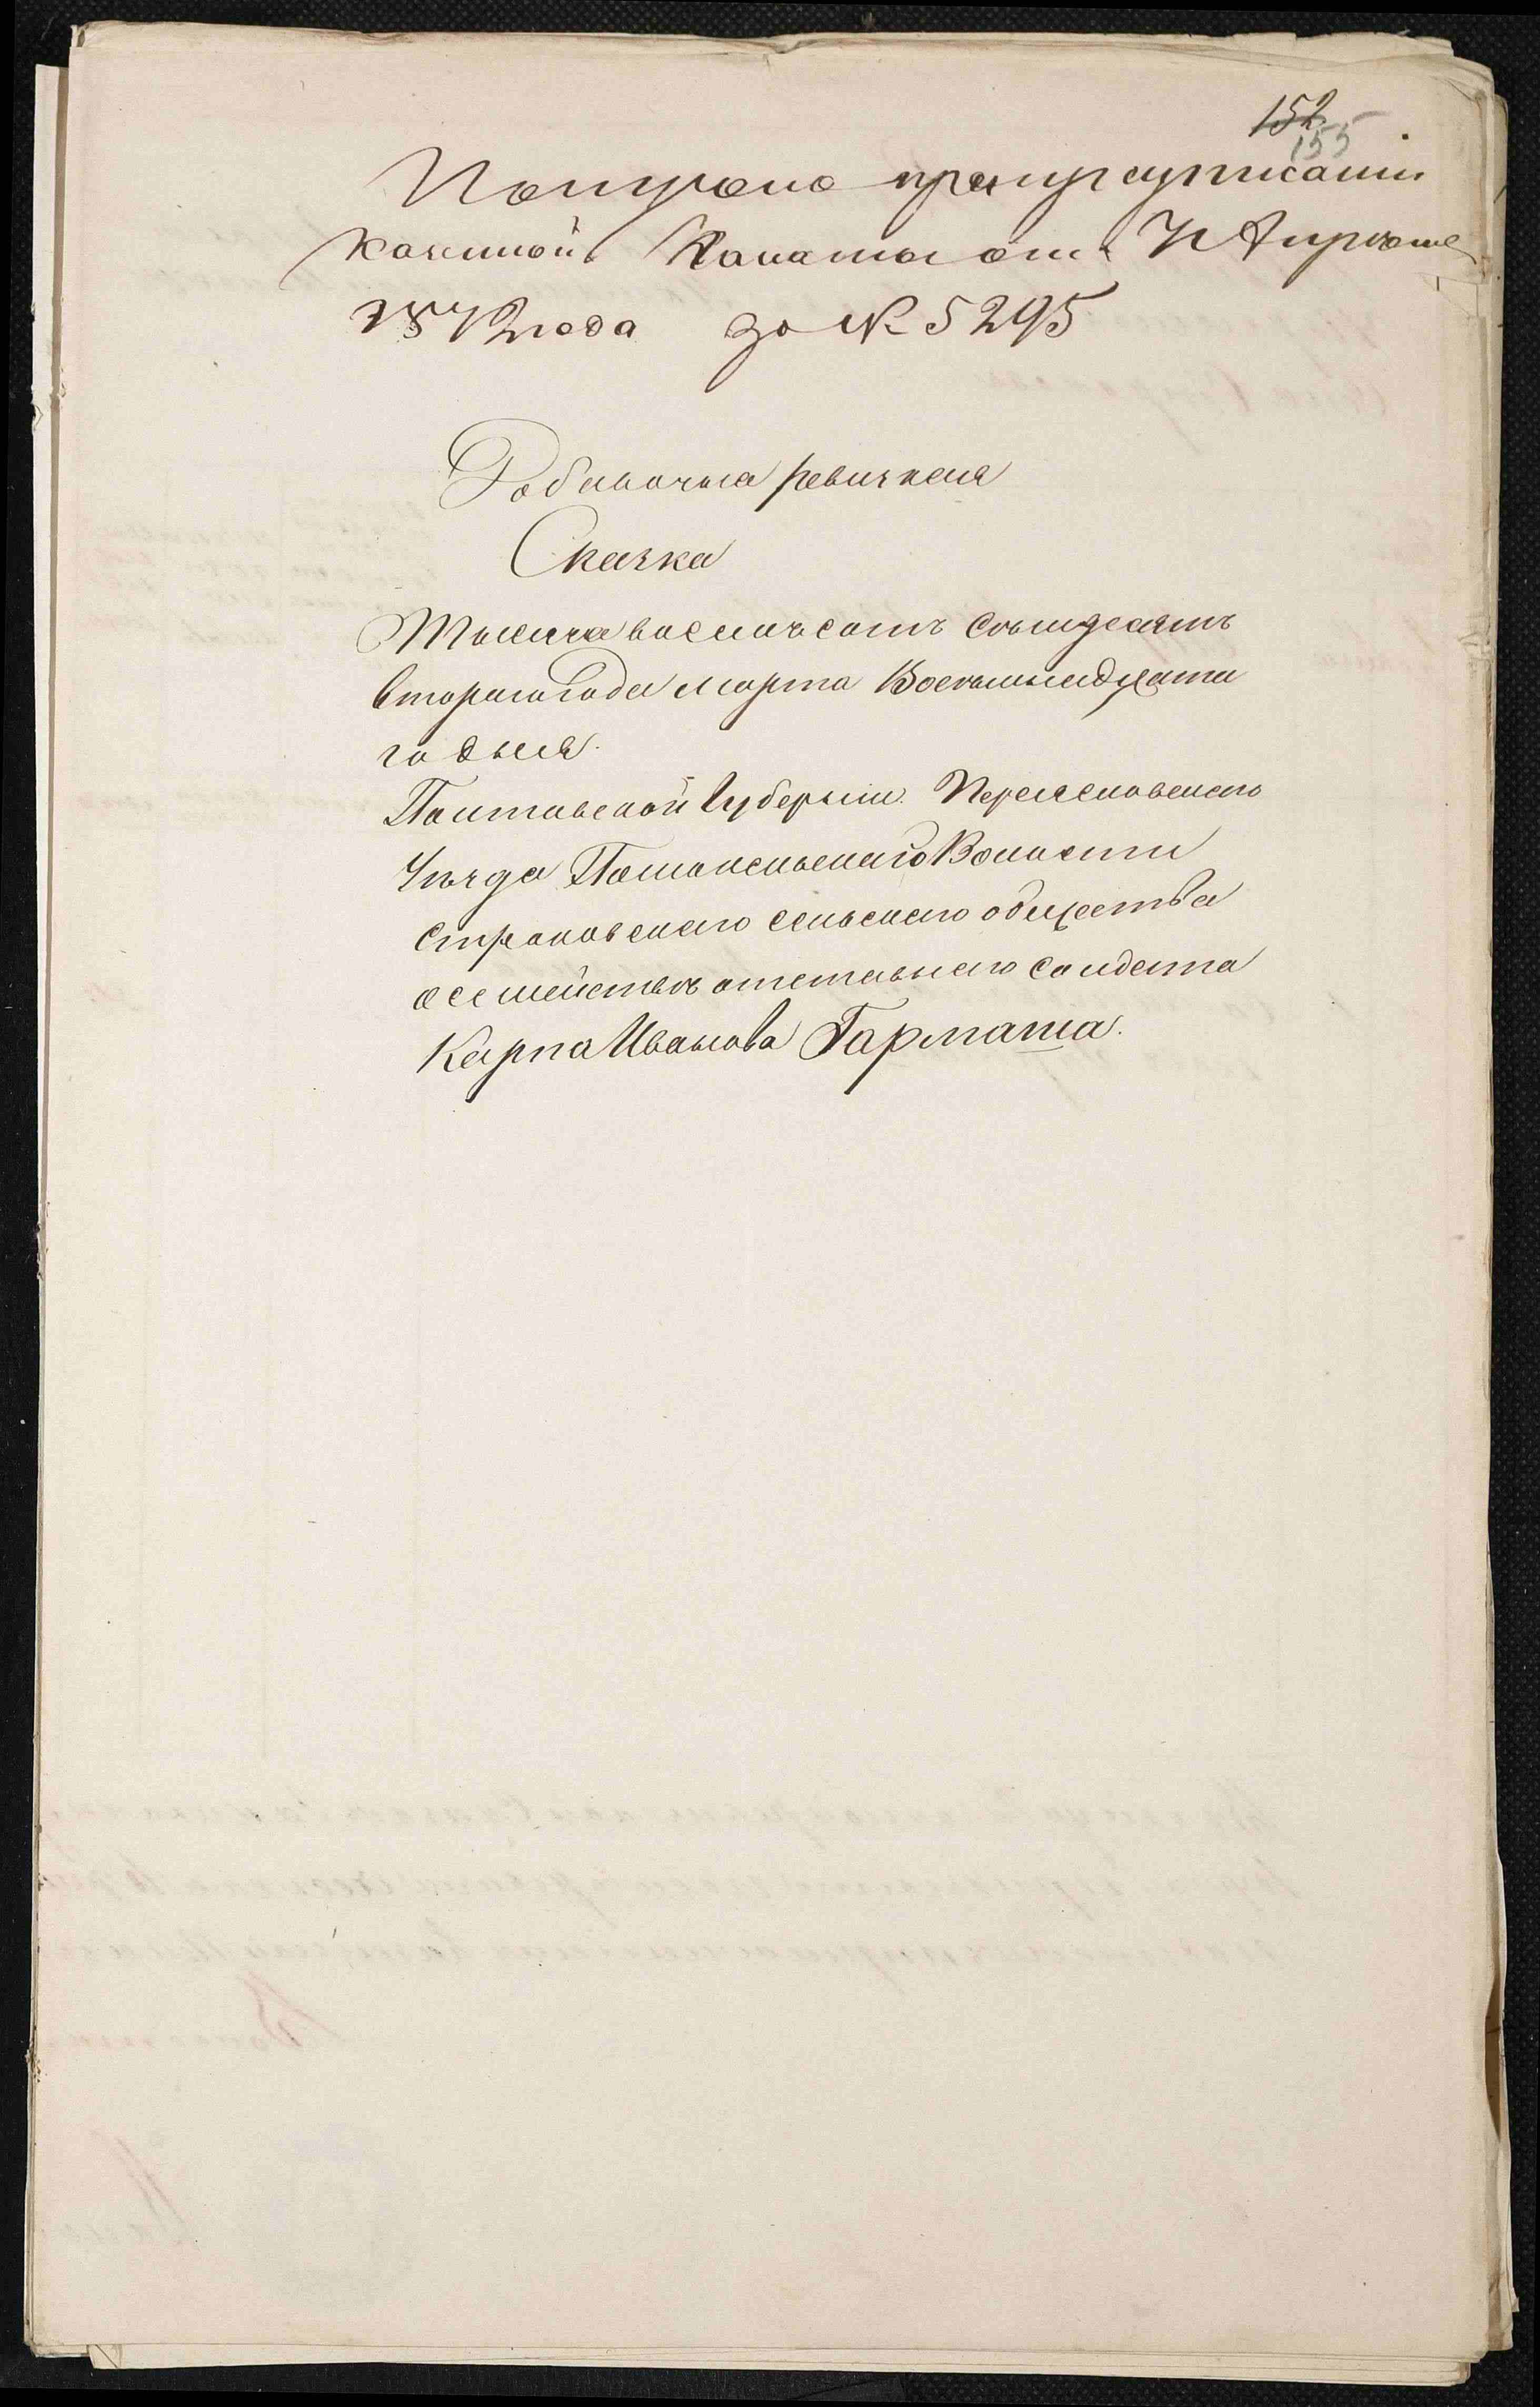 152
155
Получено при предписаніи
Казенной Палаты отъ Апреля
1872 года за № 5295
Добавочная ревизская
Сказка
Тысяча восемьсотъ семьдесятъ
втораго года Марта Восемнадцата
го дня.
Полтавской Губерніи Переяславскаго
Уѣзда Помокельскаго Волости
Строковскаго сельскаго общества
о семействѣ отставнаго солдата
Карпа Иванова Гармаша.